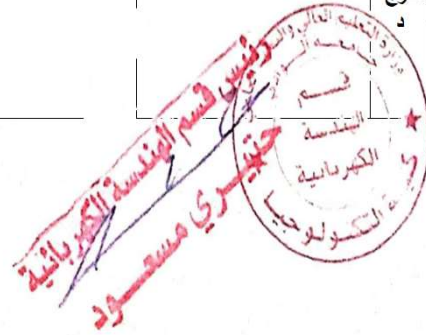 د
رئيس قسم الهندسة الكهربائية
مسعــود
وزارة التعليم العالي
جامعة
قســم
الهندسة
الكهربائية
التكنولوجيا